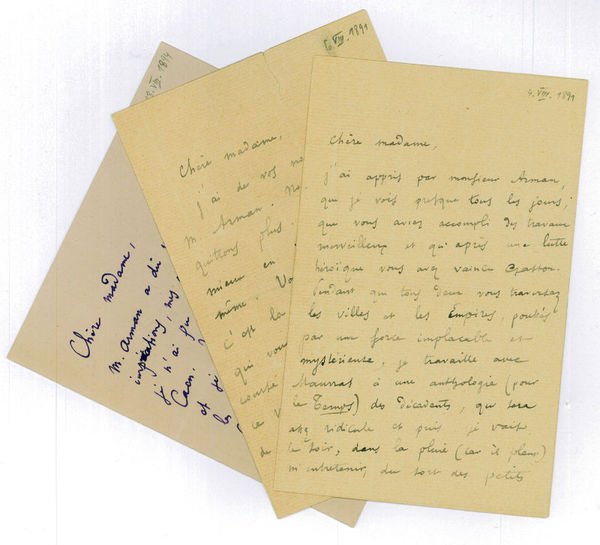 4. VIII. 1891
Chère madame,
j'ai appris par monsieur Arman,
que je vois presque tous les jours,
que vous aviez accompli des travaux
merveilleux et qu'après une lutte
héroïque vous avez vaincu
Pendant que tous deux vous traversez
les villes et les Empires, poussés
par une force implacable et
mystérieuse, je travaille avec
Maurras à une anthologie (pour
le Temps) des Décadents, qui sera
assez ridicule et puis je vais
le soir, dans la pluie (car il pleut)
m'entretenir, du sort des petits
VIII. 1891
Chère madame,
j'ai de vos
M. Arman. Ne
quittons plus
mieux en
même. Vo
c'est la
qui vou
courte
le
de
VIII. 1894
Chère madame,
M. Arman a dû
invitations, mes
je n'ai pu
Caen.
et je
les